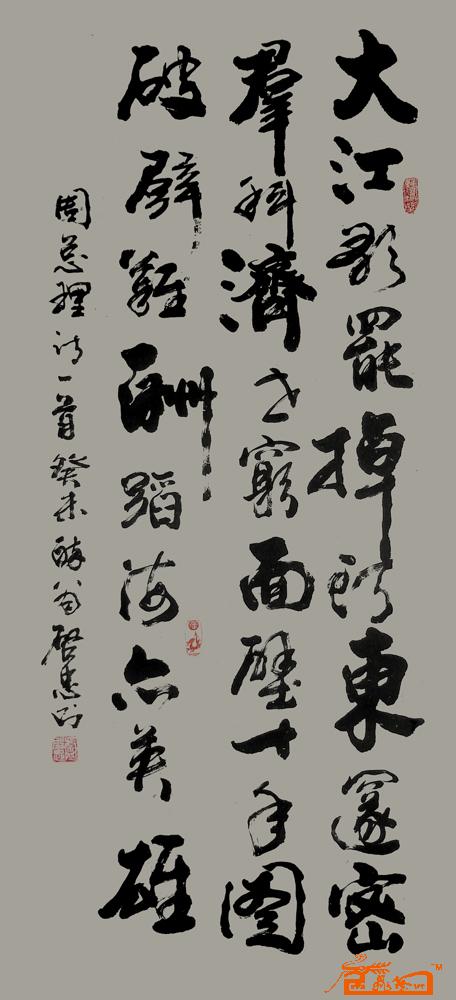 大江歌罷掉頭東邃密
羣科濟世窮面壁十年圖
破壁難酬蹈海亦英雄
周总理诗一首癸未醉翁